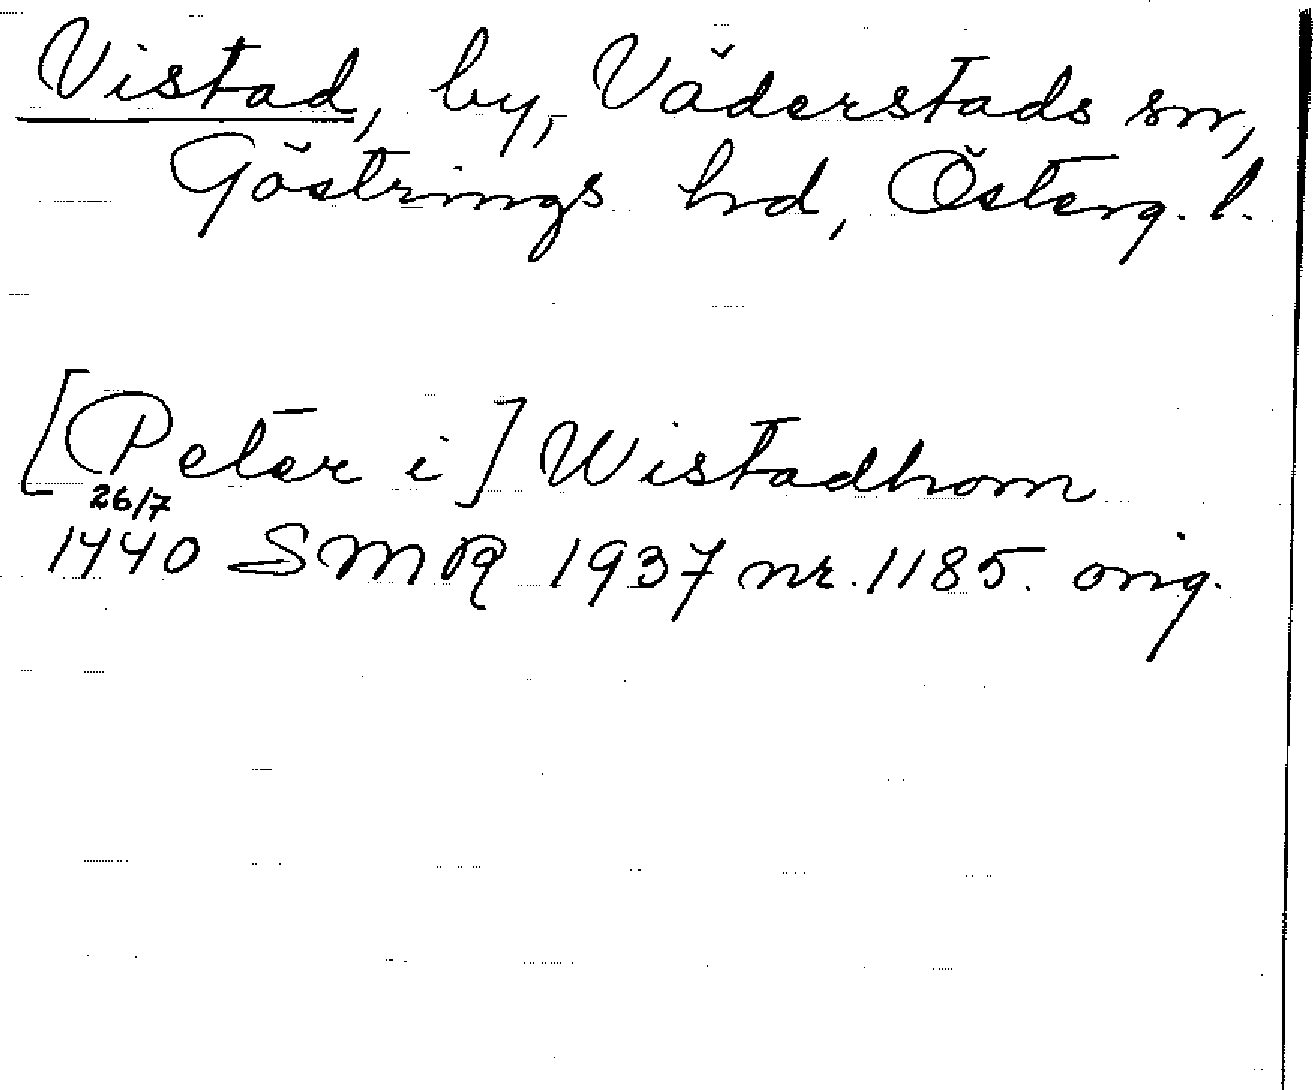 Vistad, by, Väderstads sn,
Göstrings hd, Österg. l.
[Peter i] Wistadhom
26/7
1440 SMR 1937 nr. 1185. orig.